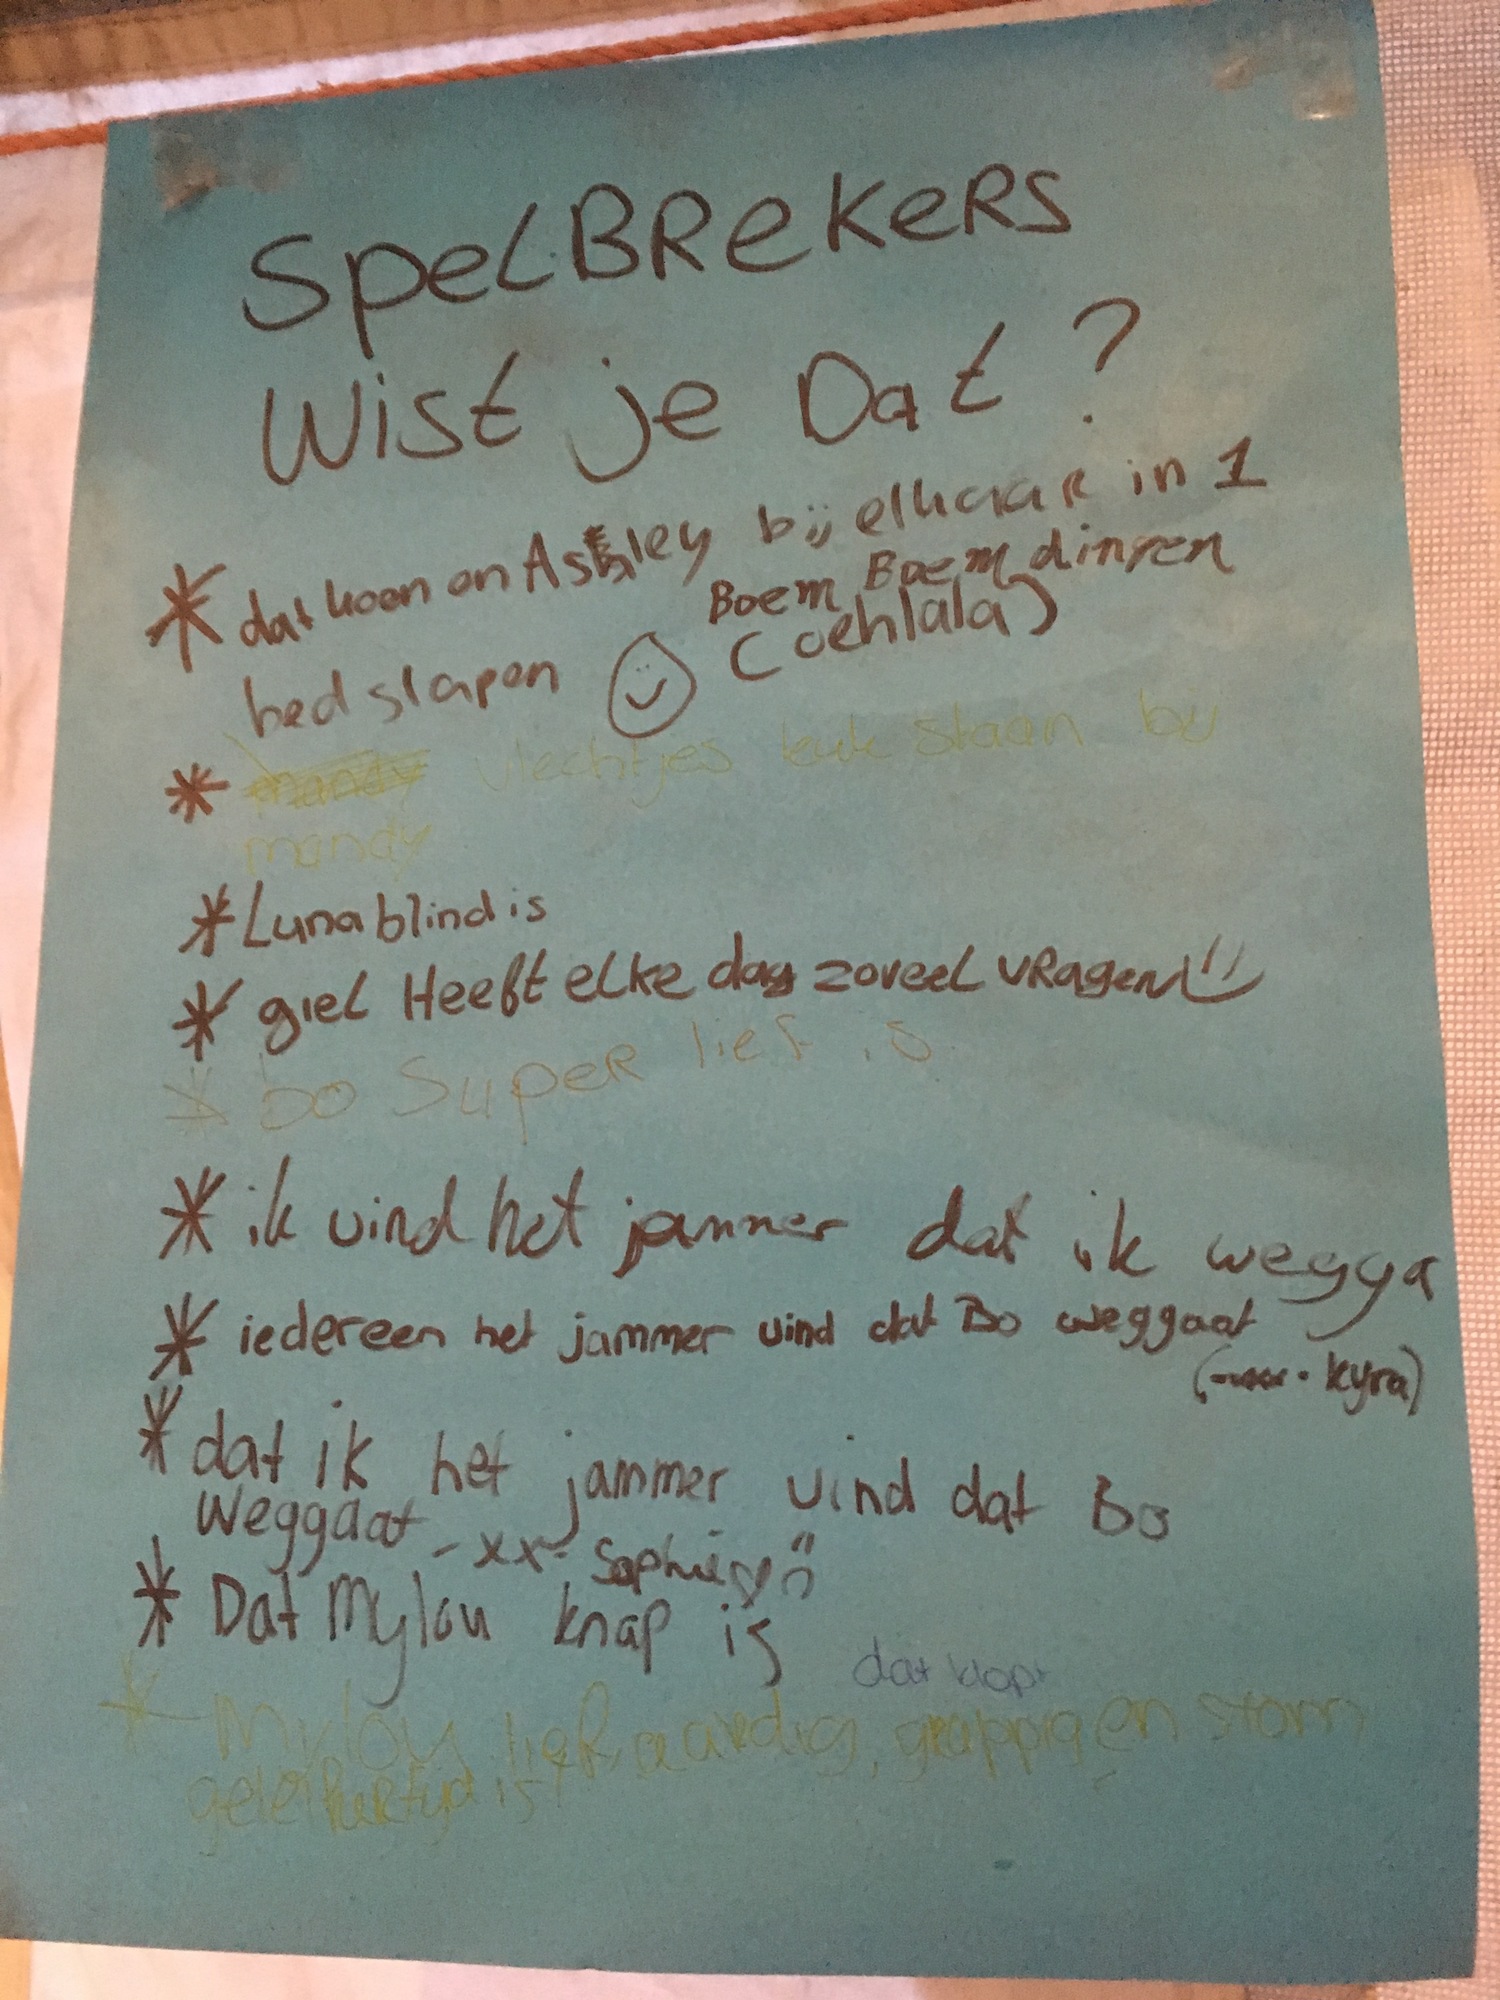 SpelBRekeRs
Wist je Dat?
* dat koen en Ashley bij elkaar in 1
bed slapen Boem Boem dingen
(oehlala)
* vlechtjes leuk staan bij
mandy
* Luna blind is
* giel Heeft elke dag zoveel vRagen
* bo SupeR lief is
* ik vind het jammer dat ik wegga
* iedereen het jammer vind dat Bo weggaat
(kyra)
* dat ik het jammer vind dat Bo
weggaat -xx- Sophie
* Dat Mylou knap is
dat klopt
* Mylou lief, aardig, grappig en stom
gelijkertijd is